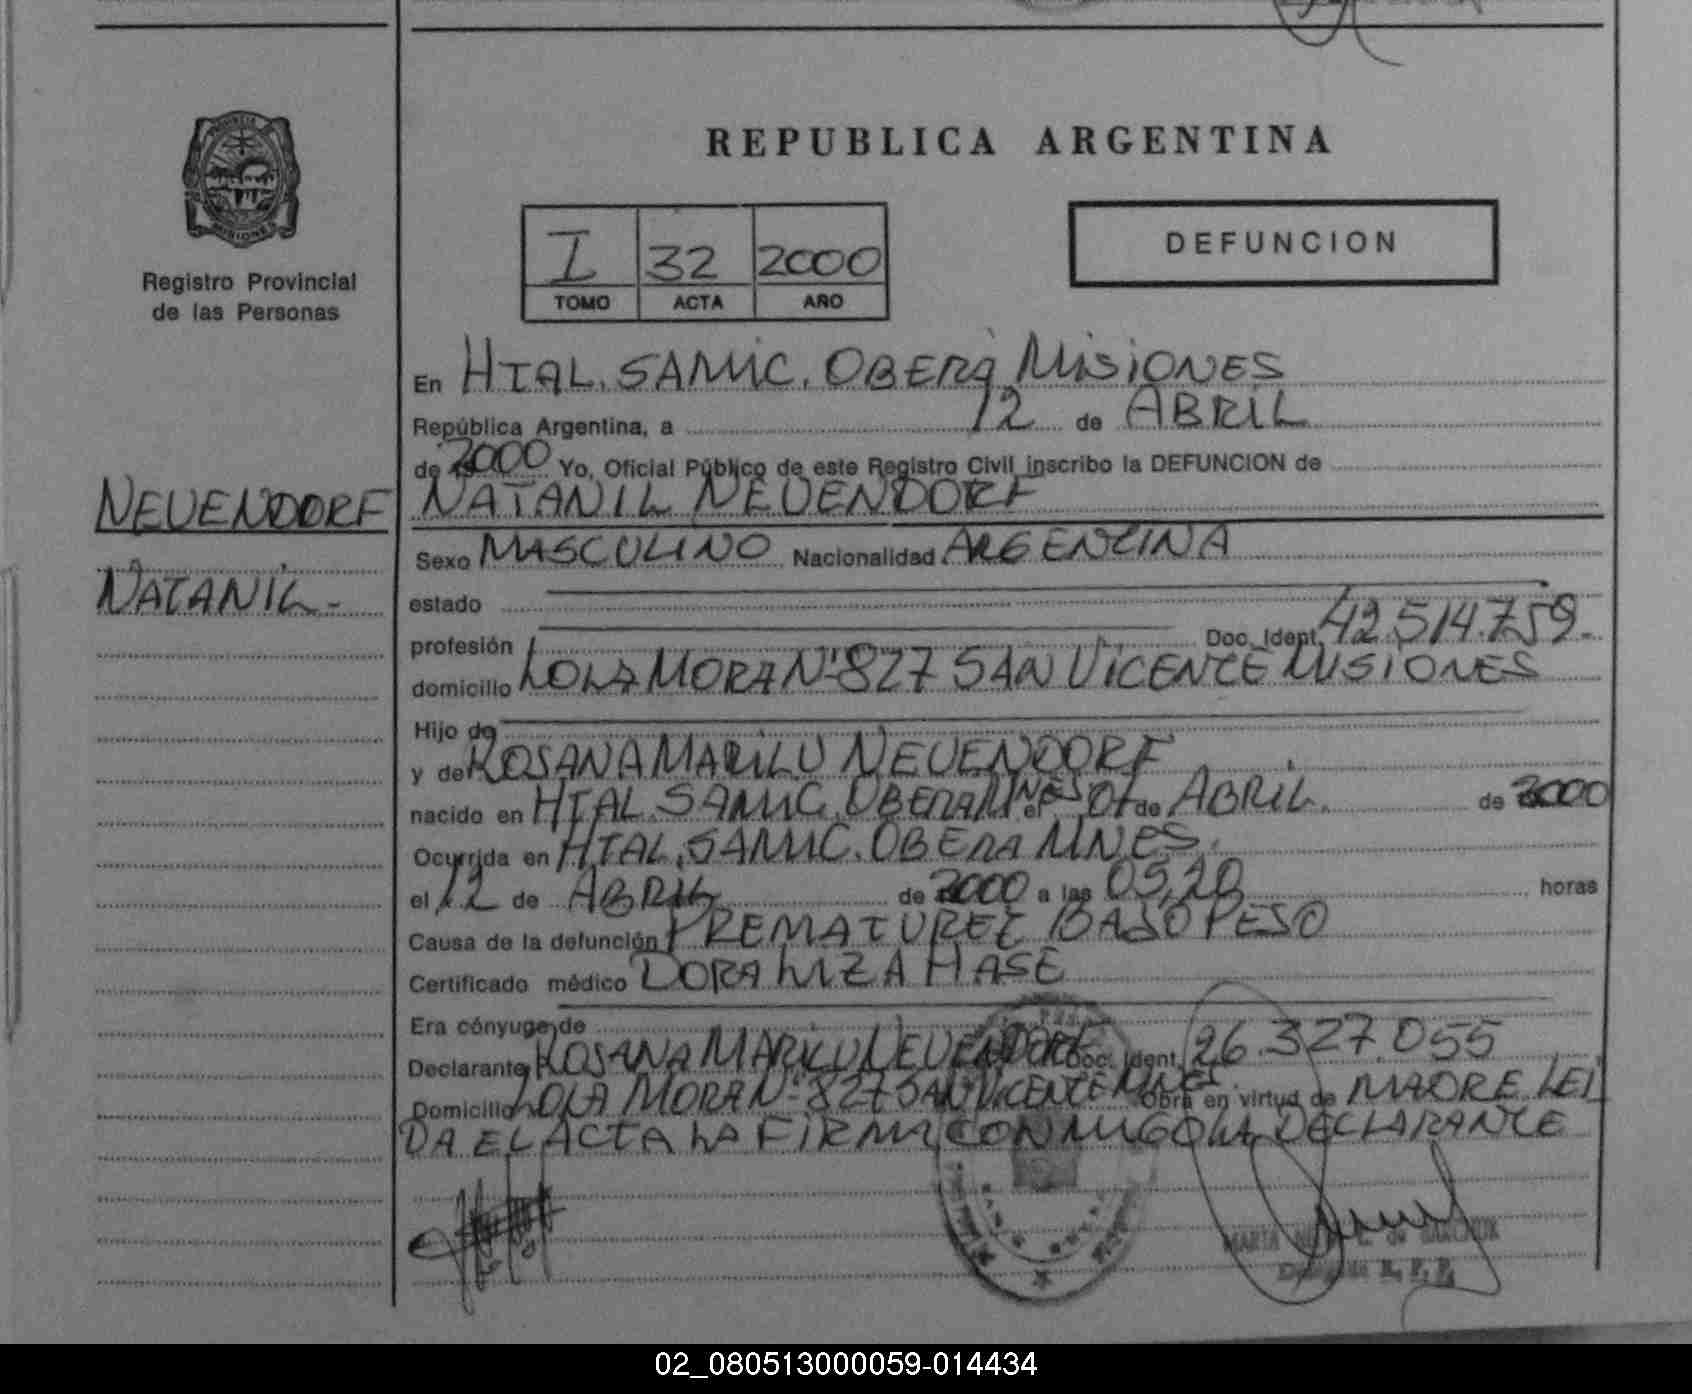 PROVINCIA
MISIONES
Registro Provincial
de las Personas
REPUBLICA ARGENTINA
I 32 2000
TOMO ACTA AÑO
DEFUNCION
En HTAL. SAMIC. OBERÁ MISIONES
República Argentina, a 12 de ABRIL
de 2000 Yo, Oficial Público de este Registro Civil inscribo la DEFUNCION de
NEUENDORF
NATANIL NEUENDORF
Sexo MASCULINO Nacionalidad ARGENTINA
NATANIL-
estado
profesión Doc. Ident. 42.514.759.
domicilio LOLA MORA Nº 827 SAN VICENTE MISIONES
Hijo de
y de ROSANA MARILU NEUENDORF
nacido en HTAL. SAMIC. OBERA MNES el 01 de ABRIL. de 2000
Ocurrida en HTAL. SAMIC. OBERA MNES.
el 12 de ABRIL de 2000 a las 05,20 horas
Causa de la defunción PREMATUREZ BAJO PESO
Certificado médico DORA LUZA HASE
Era cónyuge de
Declarante ROSANA MARILU NEUENDORF Doc. Ident. 26.327.055
Domicilio LOLA MORA Nº 827 SAN VICENTE MNES. Obra en virtud de MADRE LEI
DA EL ACTA LA FIRMA CONMIGO LA DECLARANTE
MARIA
R. P. P.
02_080513000059-014434